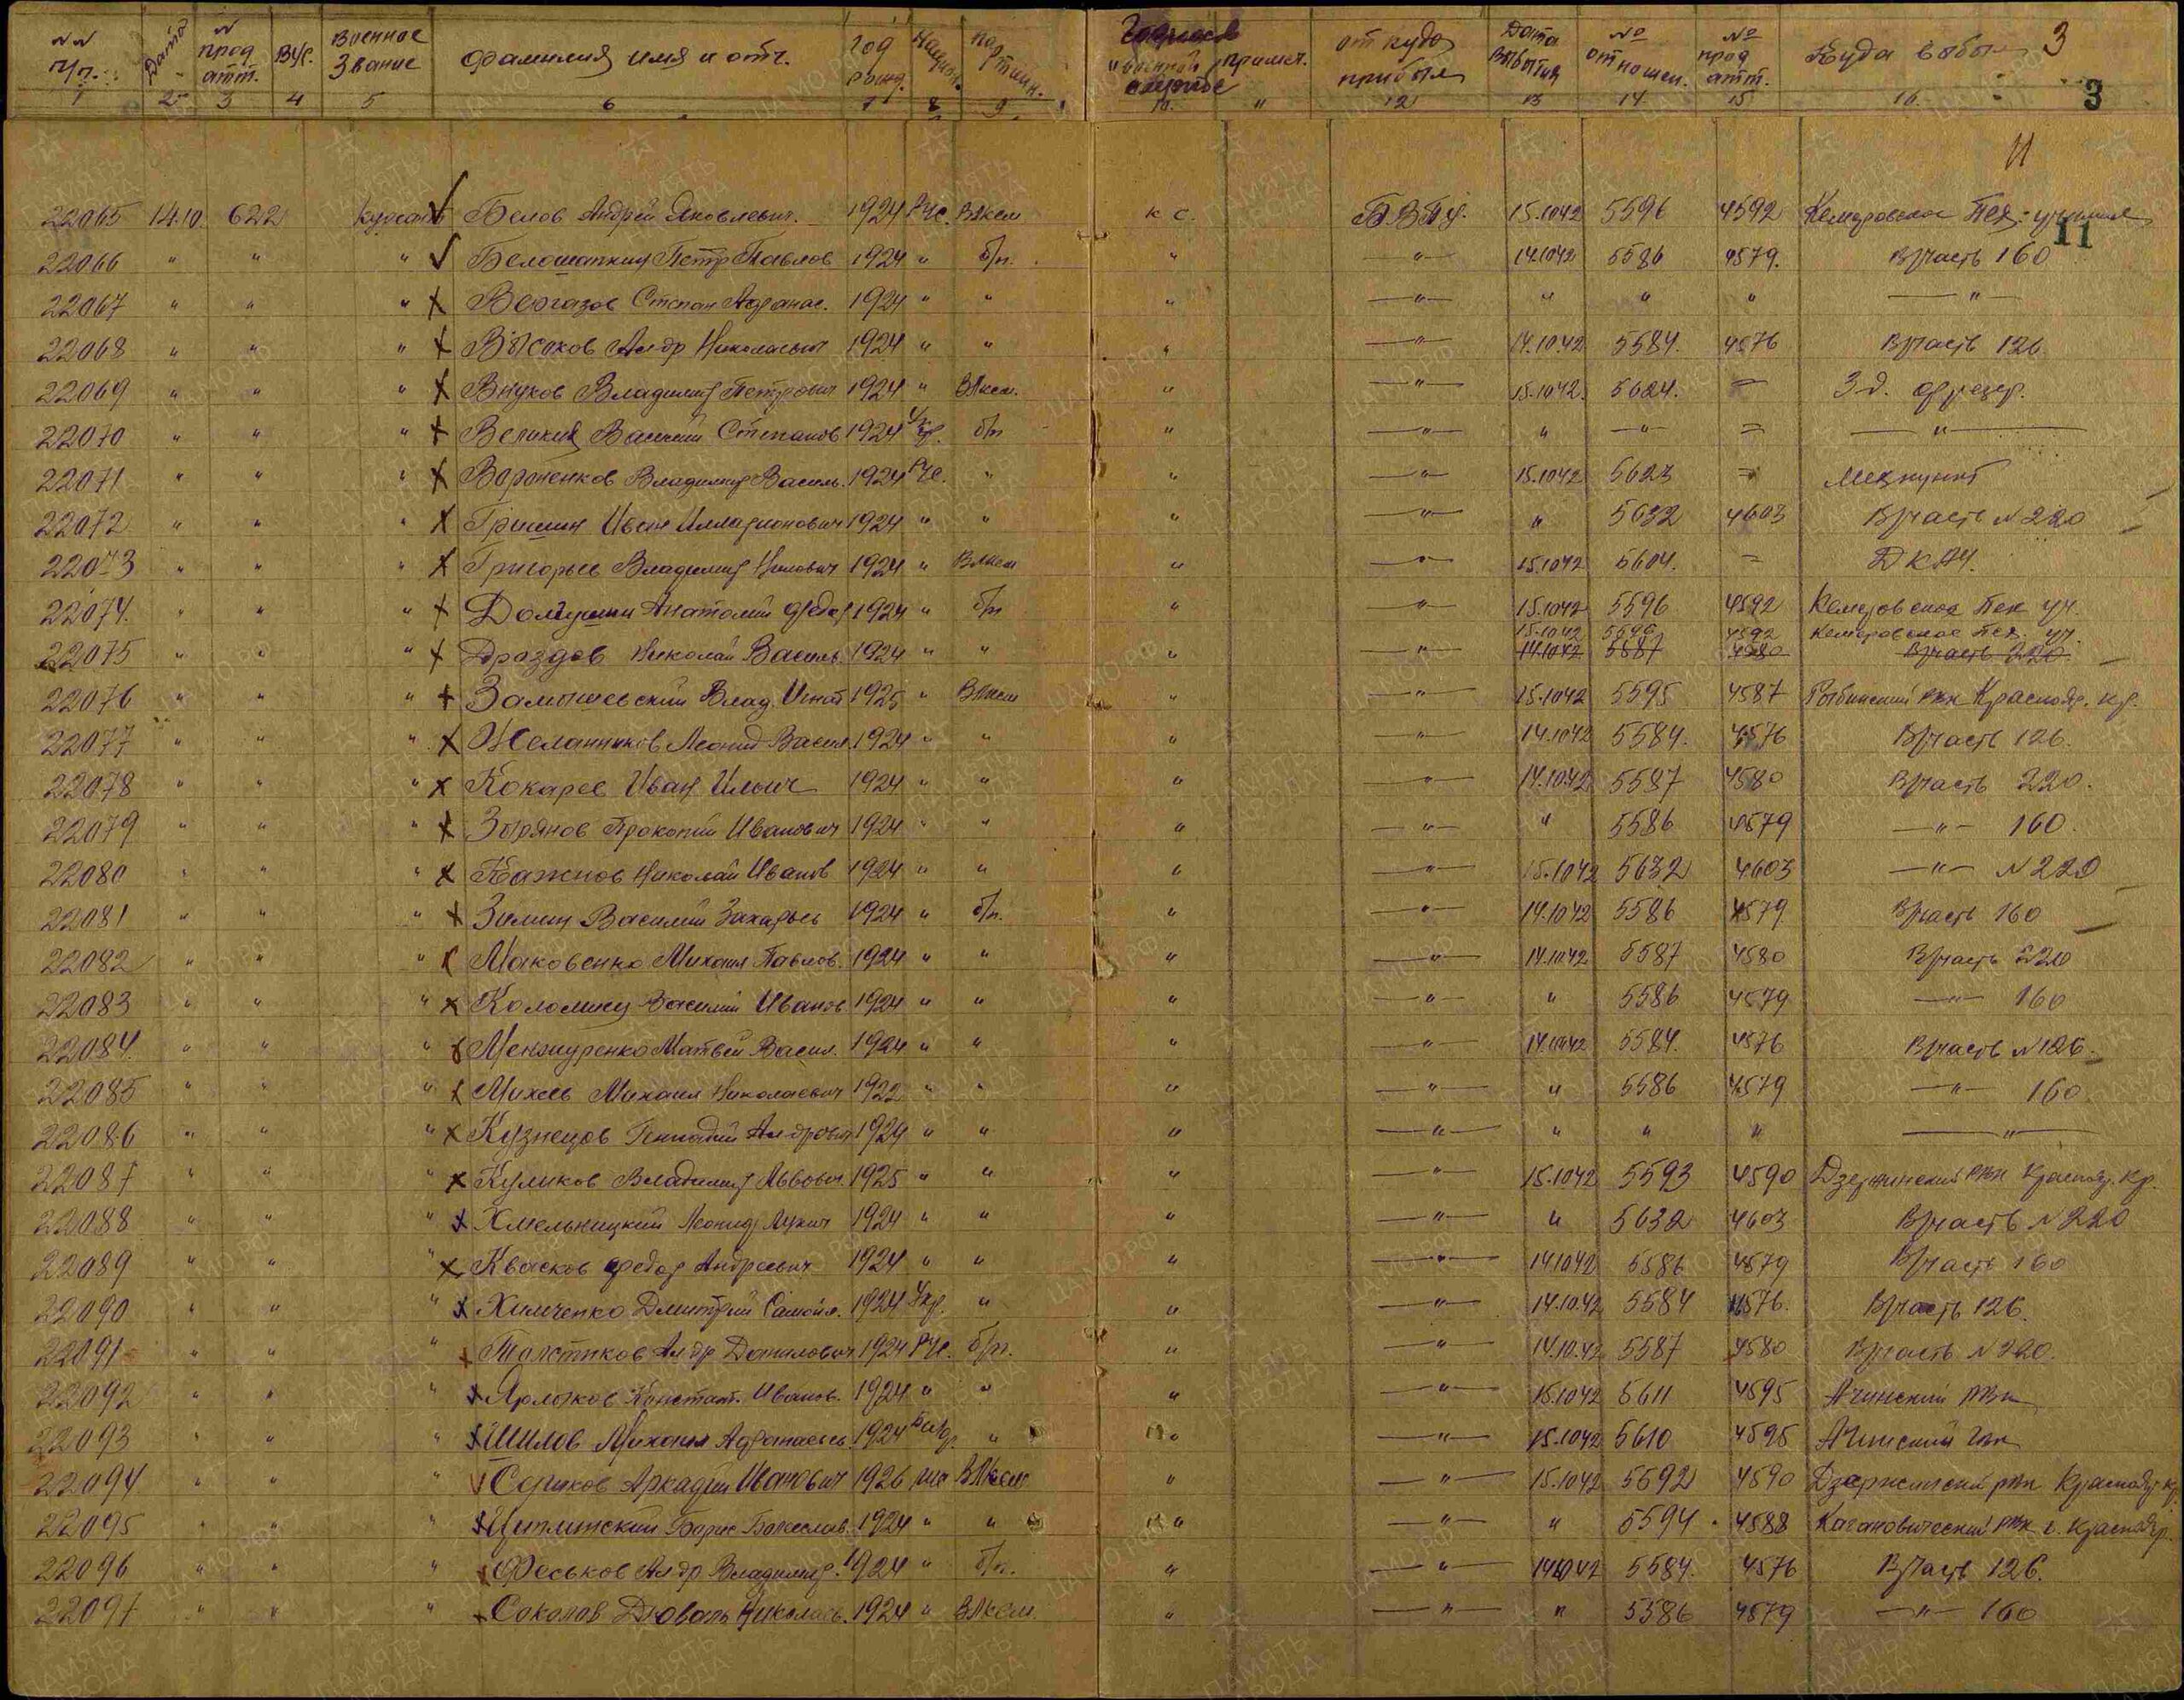 №№ п/п. Дата № прод атт. ВУС. Военное Звание Фамилия имя и отч. Год рожд. Национ. партийн. Годность к военной службе примеч. откуда прибыл Дата выбытия № отношен. № прод атт. Куда выбыл 3
1 2 3 4 5 6 7 8 9 10. " 12 13 14 15 16. 3
11
22065 14.10. 622 курсант Белов Андрей Яковлевич. 1924 Рус. Влксм к с. Б.В.П.у. 15.10.42 5596 4592 Кемеровское Пех. училище
11
22066 " " " Белошапкин Петр Павлов 1924 " б/п. " — " — 14.10.42 5586 4579. В/часть 160
22067 " " " Степан Афанас. 1924 " " " — " — " " " — " —
22068 " " " Высоков Ал-др Николаевич 1924 " " " — " — 14.10.42 5584. 4576 В/часть 126.
22069 " " " Внуков Владимир Петрович 1924 " Влксм. " — " — 15.10.42. 5624. = З-д. фрезер.
22070 " " " Великий Василий Степанов 1924 Укр. б/п " — " — " — " — = — " —
22071 " " " Вороненков Владимир Василь. 1924 Рус. " " — " — 15.10.42 5623 = Медпункт
22072 " " " Гришин Иван Илларионович 1924 " " " — " — " 5632 4603 В/часть № 220
22073 " " " Григорьев Владимир Нилович 1924 " Влксм " — " — 15.10.42 5604. = ДКАЧ.
22074. " " " Долгушин Анатолий Федор 1924 " б/п " — " — 15.10.42 5596 4592 Кемеровское Пех уч.
15.10.42 5596 4592 Кемеровское Пех. уч.
22075 " " " Дроздов Николай Василь. 1924 " " " — " — 14.10.42 5587 4580 В/часть 220
22076 " " " Замышевский Влад. Игнат 1925 " Влксм " — " — 15.10.42 5595 4587 Рыбинский рвк Краснояр. кр.
22077 " " " Желанников Леонид Васил. 1924 " " " — " — 14.10.42 5584. 4576 В/часть 126.
22078 " " " Кокарев Иван Ильич 1924 " " " — " — 14.10.42 5587 4580 В/часть 220.
22079 " " " Зырянов Прокопий Иванович 1924 " " " — " — " 5586 4579 — " — 160.
22080 " " " Бажнов Николай Иванов 1924 " " " — " — 15.10.42 5632 4603 — " — № 220
22081 " " " Зимин Василий Захарьев 1924 " б/п. " — " — 14.10.42 5586 4579 В/часть 160
22082 " " " Маковенко Михаил Павлов. 1924 " " " — " — 14.10.42 5587 4580 В/часть 220
22083 " " " Коломиец Василий Иванов 1924 " " " — " — " 5586 4579 — " — 160
22084. " " " Менжуренко Матвей Васил. 1924 " " " — " — 14.10.42 5584. 4576 В/часть № 126.
22085 " " " Михеев Михаил Николаевич 1922 " " " — " — " 5586 4579 — " — 160.
22086 " " " Кузнецов Геннадий Ал-дрович 1924 " " " — " — " " " — " —
22087 " " " Куликов Владимир Львович. 1925 " " " — " — 15.10.42 5593 4590 Дзержинский РВК Краснояр. кр.
22088 " " " Хмельницкий Леонид Лукич 1924 " " " — " — " 5632 4603 В/часть № 220
22089 " " " Квасков Федор Андреевич 1924 " " " — " — 14.10.42 5586 4579 В/часть 160
22090 " " " Химченко Дмитрий Самойл. 1924 Укр. " " — " — 14.10.42 5584 4576. В/часть 126.
22091 " " " Толстиков Ал-др Данилович 1924 Рус. б/п. " — " — 14.10.42 5587 4580 В/часть № 220.
22092 " " " Ярлыков Констант. Иванов. 1924 " " " — " — 15.10.42 5611 4595 Ачинский РВк
22093 " " " Шилов Михаил Афанасьев. 1924 " " — " — 15.10.42 5610 4595 Ачинский Гвк
22094 " " " Сориков Аркадий Иванович 1926 рус Влксм " — " — 15.10.42 5592 4590 Дзержинский рвк Краснояр. кр
22095 " " " Цитлинский Борис Болеслав. 1924 " " " — " — " 5594 4588 Кагановический рвк г. Краснояр.
22096 " " " Феськов Ал-др Владимир. 1924 " б/п. " — " — 14.10.42 5584. 4576 В/часть 126.
22097 " " " Соколов Дюваль Николаев. 1924 " Влксм. " — " — " 5586 4579 — " — 160